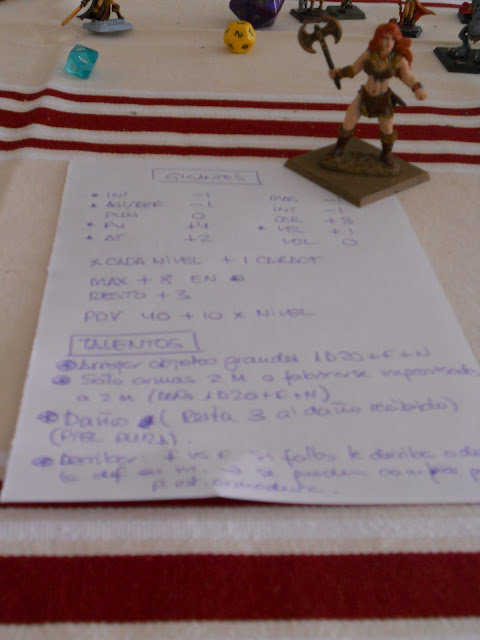 GIGANTES
• INI -1
• AGI/DEF -1
PUN 0
• FU +4
• AT +2
MAG
INT -1
CAR +3
• VEL +1
VOL 0
X CADA NIVEL +1 CARACT
MAX +8 EN
RESTO +3
PDV 40 + 10 X NIVEL
TALENTOS
Arrojar objetos grandes 1D20+F+N
Solo armas 2 M o fabricarse improvisada
a 2 M (DAÑO 1D20+F+N)
Daño (Resta 3 al daño recibido)
(PIEL DURA)
Derribar: F vs F si falla le derriba
la def
se pueden
2